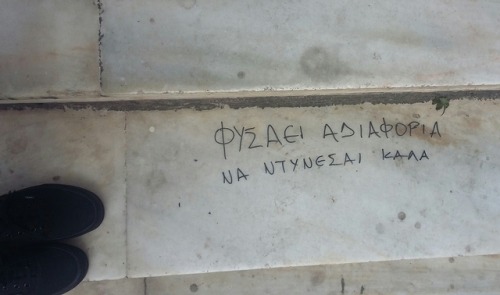 ΦΥΣΑΕΙ ΑΔΙΑΦΟΡΙΑ
ΝΑ ΝΤΥΝΕΣΑΙ ΚΑΛΑ